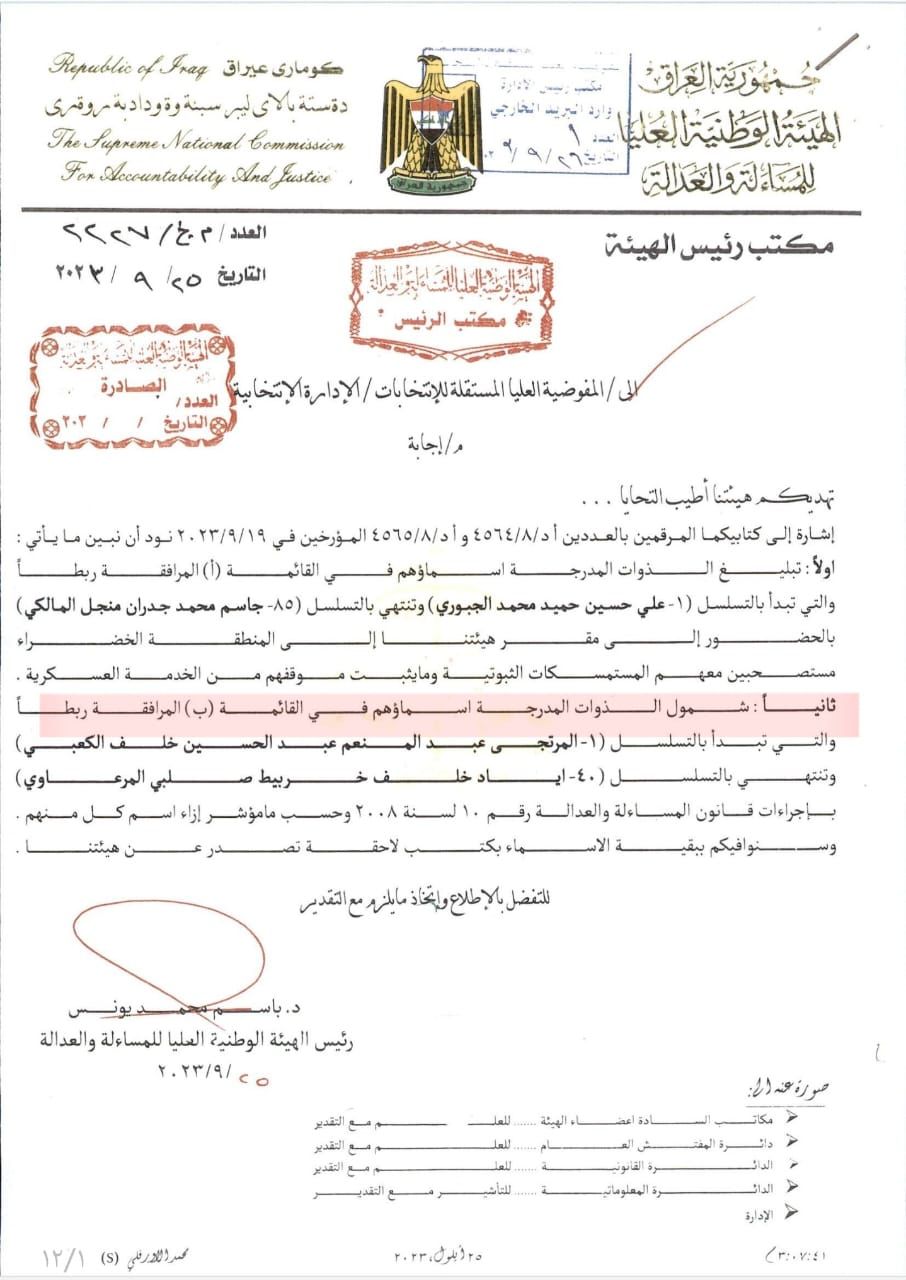 جمهورية العراق
الهيئة الوطنية العليا
للمساءلة والعدالة
Republic of Iraq كوماری عیراق
The Supreme National Commission
For Accountability And Justice
جمهورية العراق
مكتب رئيس الادارة
وارد البريد الخارجي
العدد
التاريخ
مكتب رئيس الهيئة
العدد / م.خ/ ٢٢٢٧
التاريخ ٢٥/ ٩ /٢٠٢٣
الهيئة الوطنية العليا للمساءلة والعدالة
مكتب الرئيس
الهيئة الوطنية العليا للمساءلة والعدالة
الصادرة
العدد/
التاريخ / / ٢٠٢
الى/ المفوضية العليا المستقلة للإنتخابات / الإدارة الإنتخابية
م/ إجابة
تهديكم هيئتنا أطيب التحايا ...
إشارة إلى كتابيكما المرقمين بالعددين أ د/٤٥٦٤/٨ و أ د/٤٥٦٥/٨ المؤرخين في ٢٠٢٣/٩/١٩ نود أن نبين ما يأتي :
اولاً : تبليغ الذوات المدرجة اسماؤهم في القائمة (أ) المرافقة ربطاً
والتي تبدأ بالتسلسل (١- علي حسين حميد محمد الجبوري) وتنتهي بالتسلسل (٨٥- جاسم محمد جدران منجل المالكي)
بالحضور إلى مقر هيئتنا إلى المنطقة الخضراء
مستصحبين معهم المستمسكات الثبوتية ومايثبت موقفهم من الخدمة العسكرية .
ثانياً : شمول الذوات المدرجة اسماؤهم في القائمة (ب) المرافقة ربطاً
والتي تبدأ بالتسلسل (١- المرتجى عبد المنعم عبد الحسين خلف الكعبي)
وتنتهي بالتسلسل (٤٠- اياد خلف خربيط صلبي المرعاوي)
بإجراءات قانون المساءلة والعدالة رقم ١٠ لسنة ٢٠٠٨ وحسب مامؤشر إزاء اسم كل منهم .
وسنوافيكم ببقية الاسماء بكتب لاحقة تصدر عن هيئتنا .
للتفضل بالإطلاع وإتخاذ مايلزم مع التقدير
د. باسم محمد يونس
رئيس الهيئة الوطنية العليا للمساءلة والعدالة
٢٥/٩/٢٠٢٣
صورة عنه الى:
مكاتب السادة اعضاء الهيئة ....... للعلم مع التقدير
دائرة المفتش العام ....... للعلم مع التقدير
الدائرة القانونية ....... للعلم مع التقدير
الدائرة المعلوماتية ....... للتأشير مع التقدير
الإدارة
٣:٠٧:٤١
٢٥ أيلول، ٢٠٢٣
(S)
١٢/١